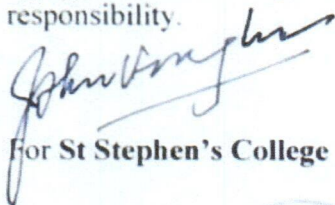 responsibility.
John
For St Stephen's College